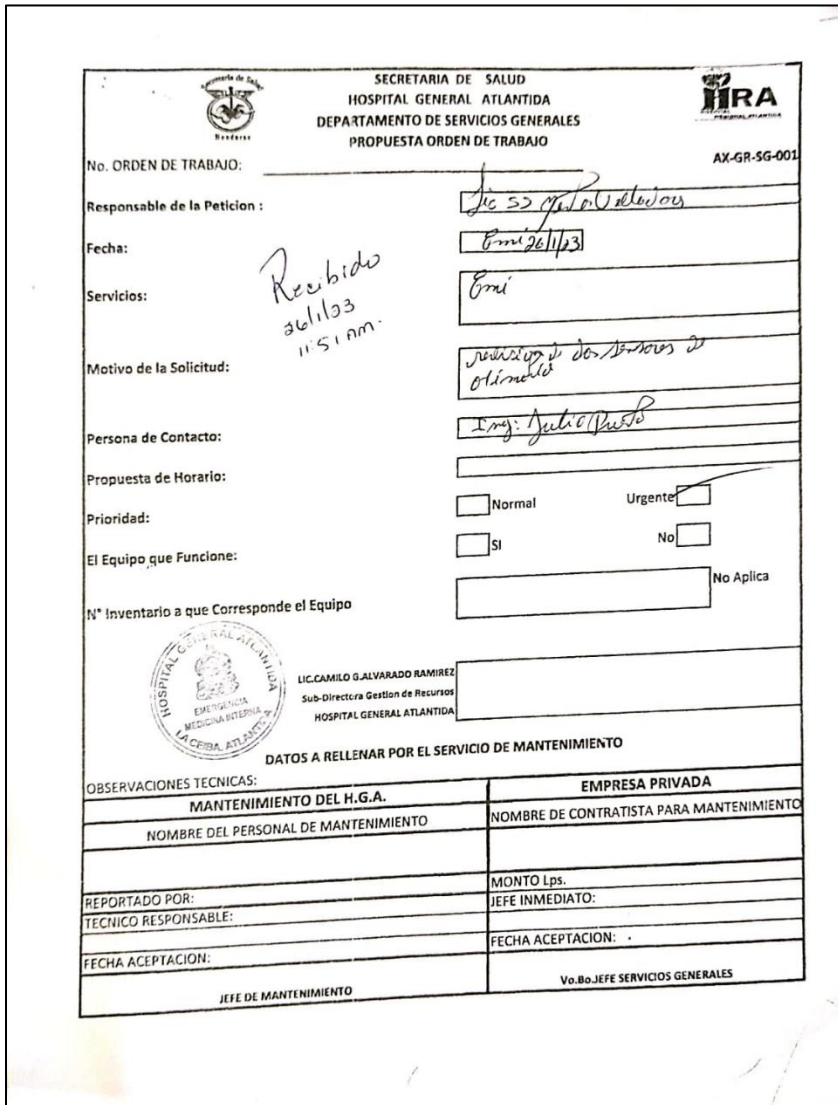 Secretaría de Salud
Honduras
SECRETARIA DE SALUD
HOSPITAL GENERAL ATLANTIDA
DEPARTAMENTO DE SERVICIOS GENERALES
PROPUESTA ORDEN DE TRABAJO
HRA
HOSPITAL REGIONAL ATLANTIDA
AX-GR-SG-001
No. ORDEN DE TRABAJO:
Responsable de la Peticion : Lic SS
Fecha: Emi 26/1/23
Recibido
26/1/23
11:51 AM.
Servicios: Emi
Motivo de la Solicitud: revision de dos sensores de
Persona de Contacto: Ing: Julio
Propuesta de Horario:
Prioridad: Normal Urgente
El Equipo que Funcione: SI No
N° Inventario a que Corresponde el Equipo No Aplica
HOSPITAL GENERAL ATLANTIDA
EMERGENCIA
MEDICINA INTERNA
LA CEIBA, ATLANTIDA
LIC.CAMILO G.ALVARADO RAMIREZ
Sub-Directora Gestion de Recursos
HOSPITAL GENERAL ATLANTIDA
DATOS A RELLENAR POR EL SERVICIO DE MANTENIMIENTO
OBSERVACIONES TECNICAS:
MANTENIMIENTO DEL H.G.A. EMPRESA PRIVADA
NOMBRE DEL PERSONAL DE MANTENIMIENTO NOMBRE DE CONTRATISTA PARA MANTENIMIENTO
MONTO Lps.
REPORTADO POR: JEFE INMEDIATO:
TECNICO RESPONSABLE:
FECHA ACEPTACION: FECHA ACEPTACION:
JEFE DE MANTENIMIENTO Vo.Bo.JEFE SERVICIOS GENERALES